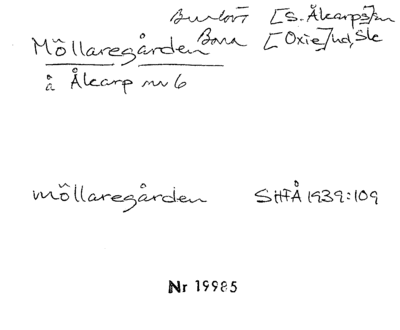 Burlöv [S. Åkarps]sn
Möllaregården Bara [Oxie]hd, Sk
å Åkarp nr 6
möllaregården SHFÅ 1939:109
Nr 19985